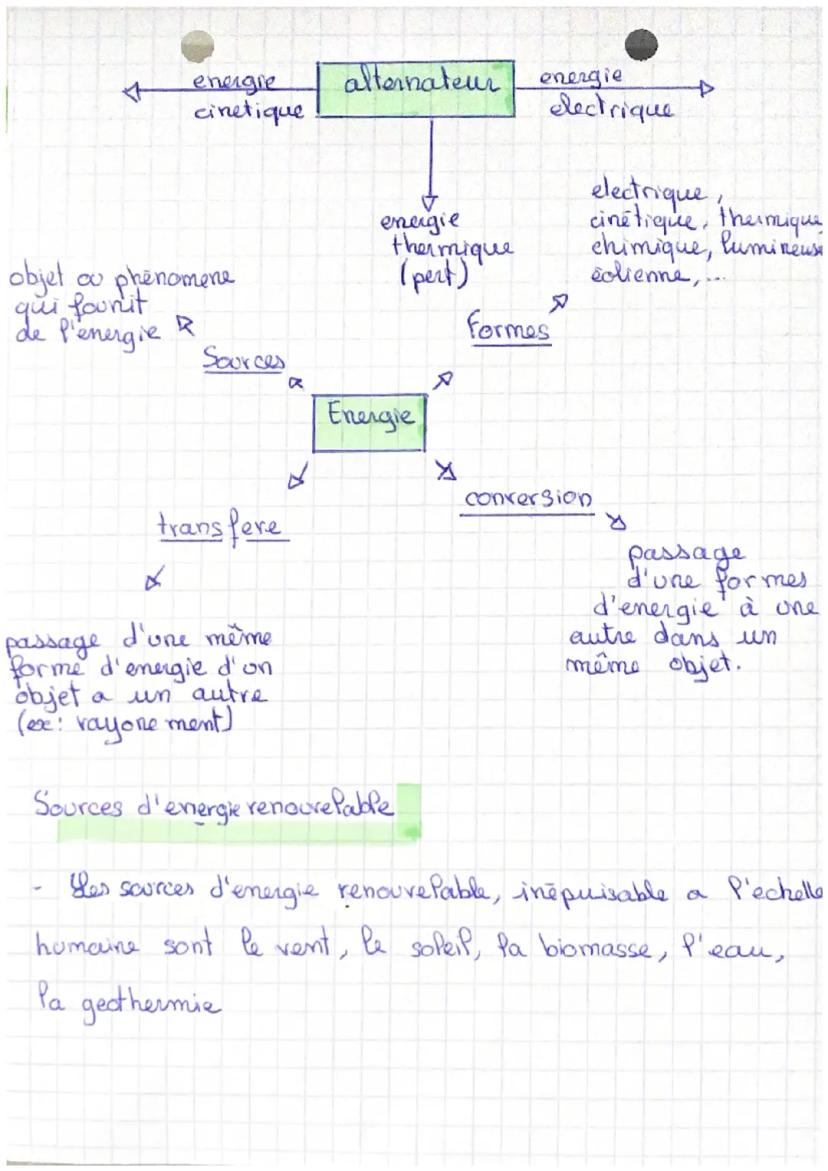 energie alternateur energie
cinetique electrique
energie
thermique
(pert)
electrique,
cinétique, thermique
chimique, lumineuse
éolienne,...
objet ou phénomene
qui founit
de l'énergie
Sources
formes
Energie
transfere
conversion
passage
d'une formes
d'energie à une
autre dans un
même objet.
passage d'une même
forme d'energie d'un
objet a un autre
(ex: rayonement)
Sources d'energie renouvelable
- Les sources d'energie renouvelable, inépuisable a l'echelle
humaine sont le vent, le soleil, la biomasse, l'eau,
la geothermie